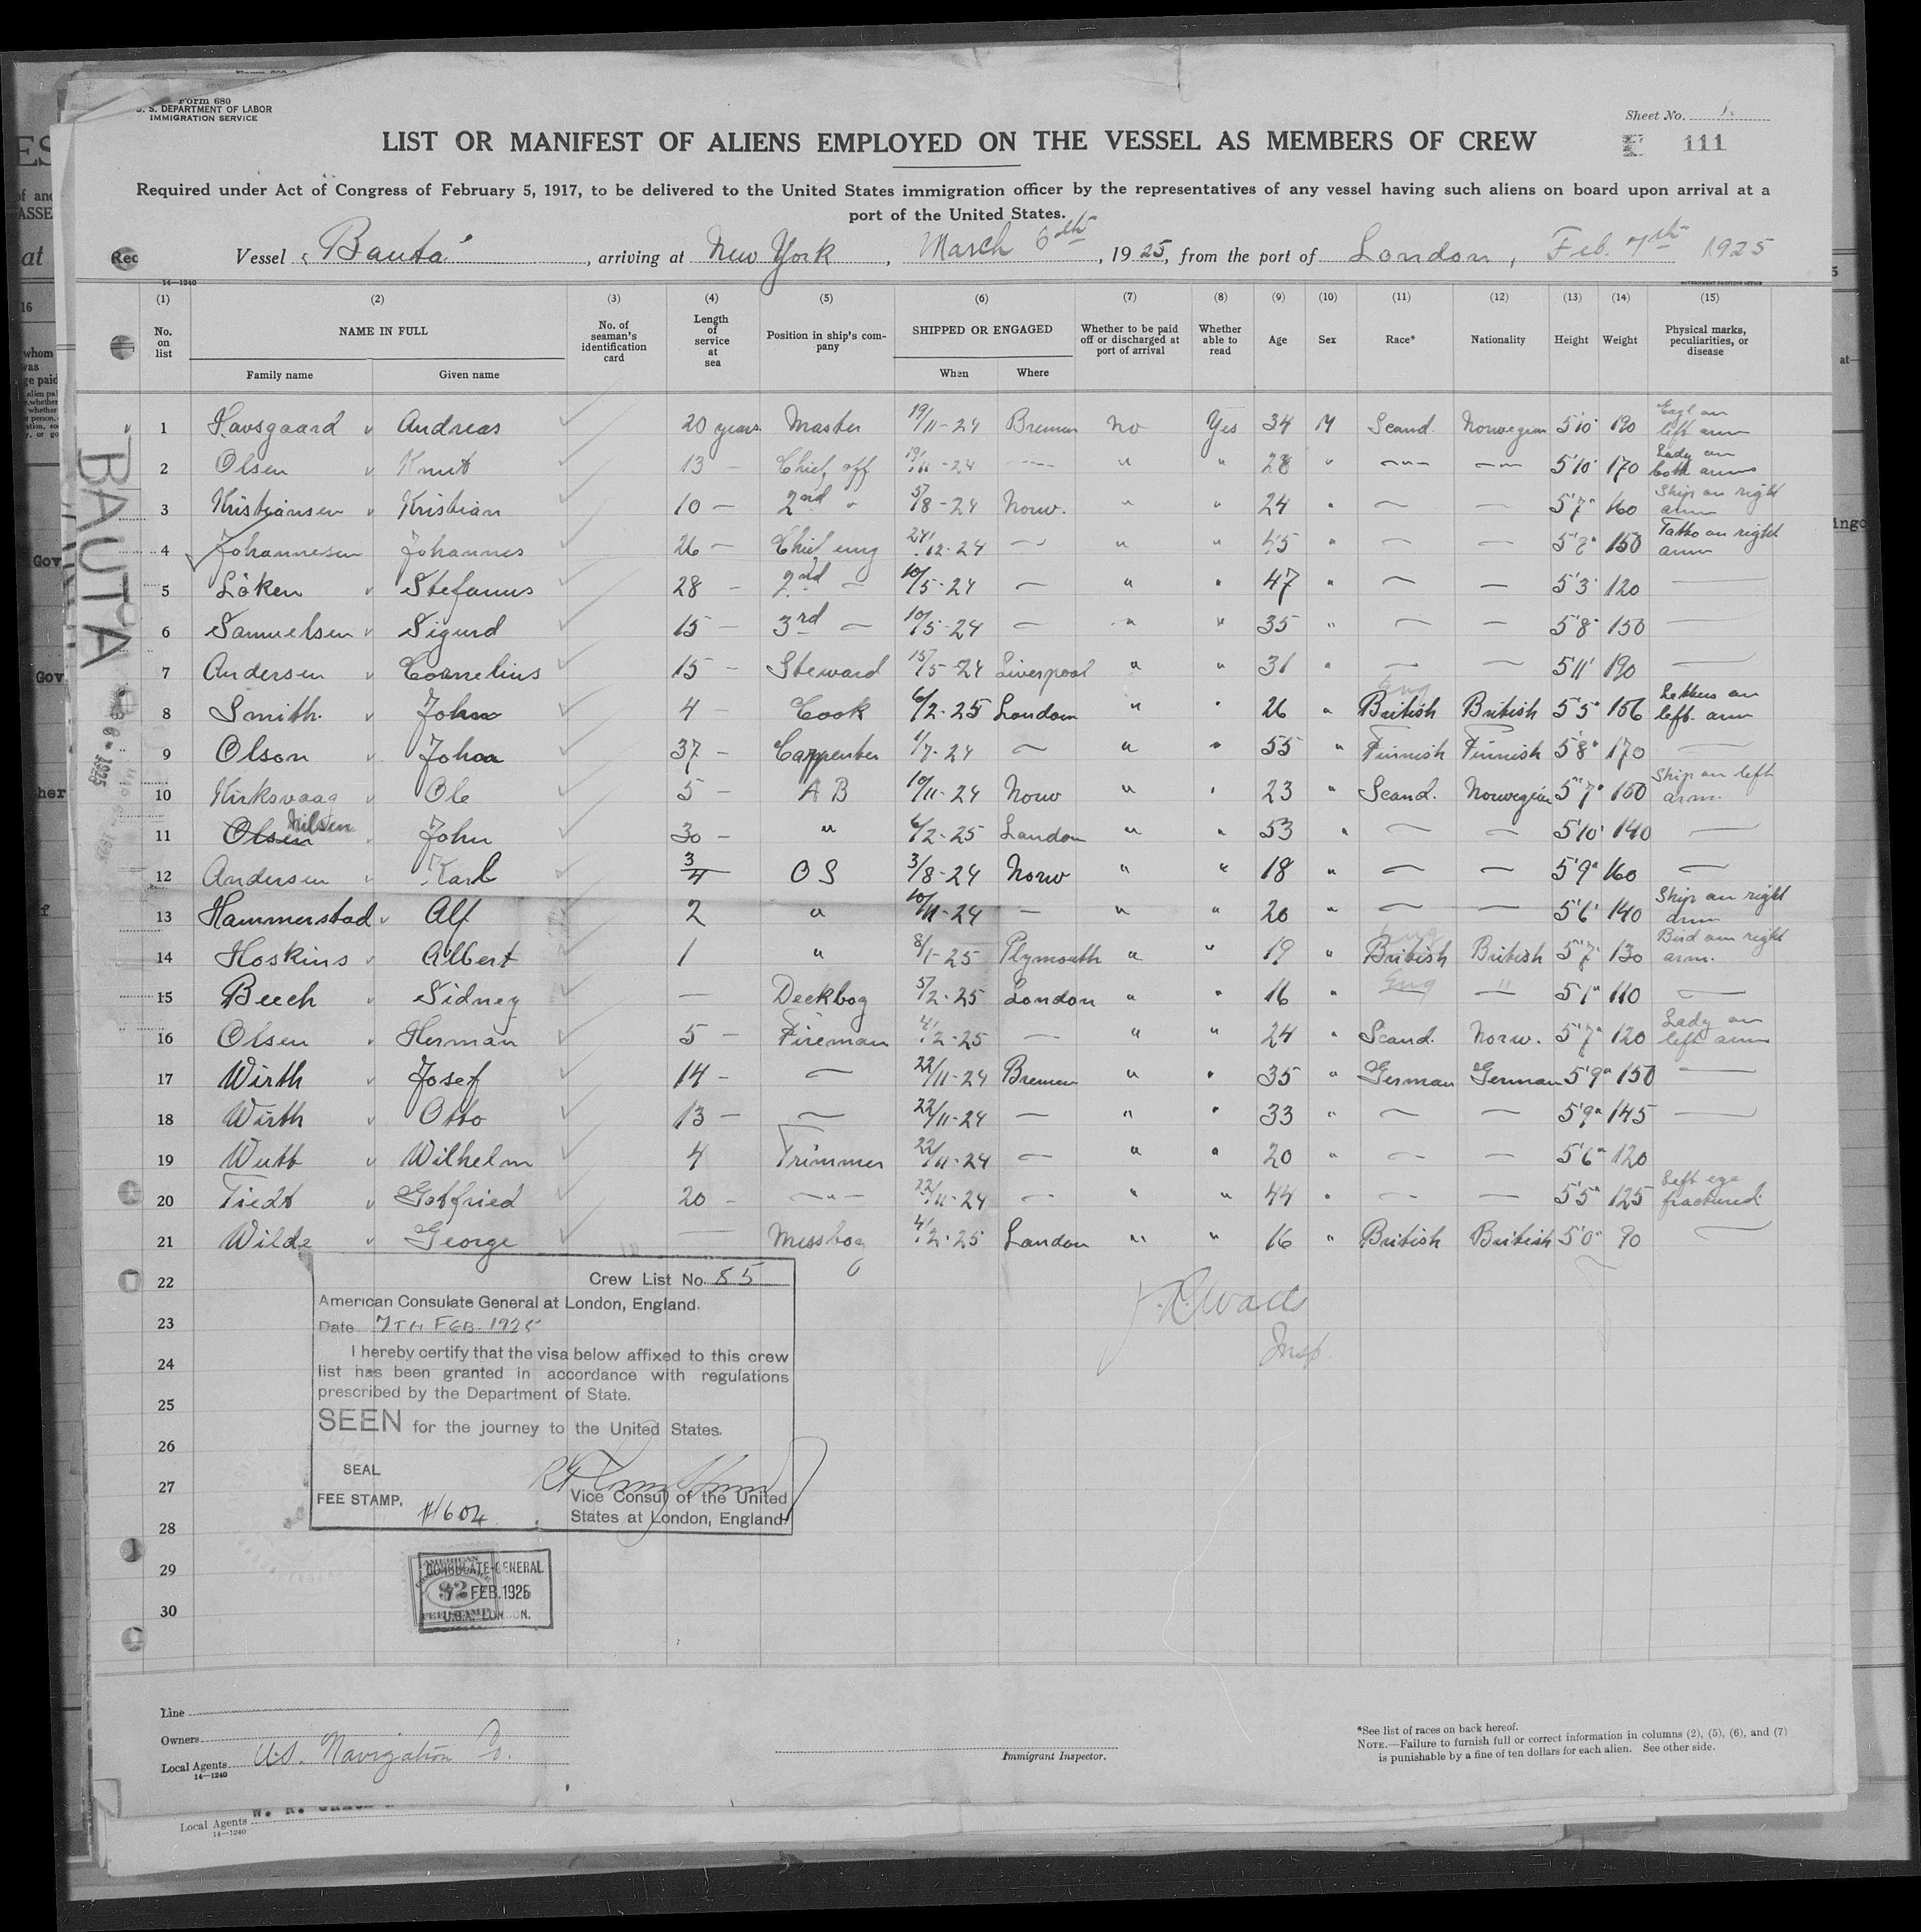 Form 680
U. S. DEPARTMENT OF LABOR
IMMIGRATION SERVICE
Sheet No. 1.
111
LIST OR MANIFEST OF ALIENS EMPLOYED ON THE VESSEL AS MEMBERS OF CREW
Required under Act of Congress of February 5, 1917, to be delivered to the United States immigration officer by the representatives of any vessel having such aliens on board upon arrival at a
port of the United States.
Vessel "Bauta", arriving at New York, March 6th, 1925, from the port of London, Feb. 7th 1925
14—1240
(1) (2) (3) (4) (5) (6) (7) (8) (9) (10) (11) (12) (13) (14) (15)
No. on list NAME IN FULL Family name Given name No. of seaman's identification card Length of service at sea Position in ship's company SHIPPED OR ENGAGED When Where Whether to be paid off or discharged at port of arrival Whether able to read Age Sex Race* Nationality Height Weight Physical marks, peculiarities, or disease
1 Havsgaard Andreas 20 years Master 19/11-24 Bremen No Yes 34 M Scand. Norwegian 5'10" 190 Eagl on left arm
2 Olsen Knut 13 — Chief off 19/11-24 -"- " " 28 " -"- -"- 5'10" 170 Lady on both arms
3 Kristiansen Kristian 10 — 2nd " 5/8-24 Norw. " " 24 " — — 5'7" 160 Ship on right arm
4 Johannesen Johannes 26 — Chief eng 24/12-24 — " " 45 " — — 150 Tatto on right arm
5 Löken Stefanus 28 — 2nd — 10/5-24 — " " 47 " — — 5'3" 120 —
6 Samuelsen Sigurd 15 — 3rd — 10/5-24 — " " 35 " — — 5'8" 150 —
7 Andersen Cornelius 15 — Steward 15/5-24 Liverpool " " 31 " — — 5'11" 190 —
8 Smith. John 4 — Cook 6/2-25 London " " 26 " Eng British British 5'5" 156 Letters on left arm
9 Olson Johan 37 — Carpenter 1/7-24 — " " 55 " Finnish Finnish 5'8" 170 —
10 Kirksvaag Ole 5 — A B 10/11-24 Norw " " 23 " Scand. Norwegian 5'7" 150 Ship on left arm.
11 Olsen Nilsen John 30 — " 6/2-25 London " " 53 " — — 5'10" 140 —
12 Andersen Karl 3/4 O S 3/8-24 Norw " " 18 " — — 5'9" 160 —
13 Hammerstad Alf 2 " 10/11-24 — " " 20 " — — 5'6" 140 Ship on right arm
14 Hoskins Albert 1 " 8/1-25 Plymouth " " 19 " Eng British British 5'7" 130 Bird on right arm.
15 Beech Sidney — Deckboy 5/2-25 London " " 16 " Eng — " 5'1" 110 —
16 Olsen Herman 5 — Fireman 4/2-25 — " " 24 " Scand. Norw. 5'7" 120 Lady on left arm
17 Wirth Josef 14 — — 22/11-24 Bremen " " 35 " German German 5'9" 150 —
18 Wirth Otto 13 — — 22/11-24 — " " 33 " — — 5'9" 145 —
19 Wutt Wilhelm 4 Trimmer 22/11-24 — " " 20 " — — 5'6" 120
20 Tiedt Gotfried 20 — -"- 22/11-24 — " " 44 " — — 5'5" 125 Left eye fractured
21 Wilde George — Messboy 4/2-25 London " " 16 " British British 5'0" 90 —
22
23
24
25
26
27
28
29
30
BAUTA
Insp.
Crew List No. 85
American Consulate General at London, England.
Date 7TH FEB. 1925
I hereby certify that the visa below affixed to this crew
list has been granted in accordance with regulations
prescribed by the Department of State.
SEEN for the journey to the United States.
SEAL
FEE STAMP.
Vice Consul of the United
States at London, England.
CONSULATE-GENERAL
FEB. 1925
U.S.A. LONDON.
Line
Owners
Local Agents U.S. Navigation Co.
14—1240
Immigrant Inspector.
*See list of races on back hereof.
NOTE.—Failure to furnish full or correct information in columns (2), (5), (6), and (7)
is punishable by a fine of ten dollars for each alien. See other side.
Local Agents
14—1240